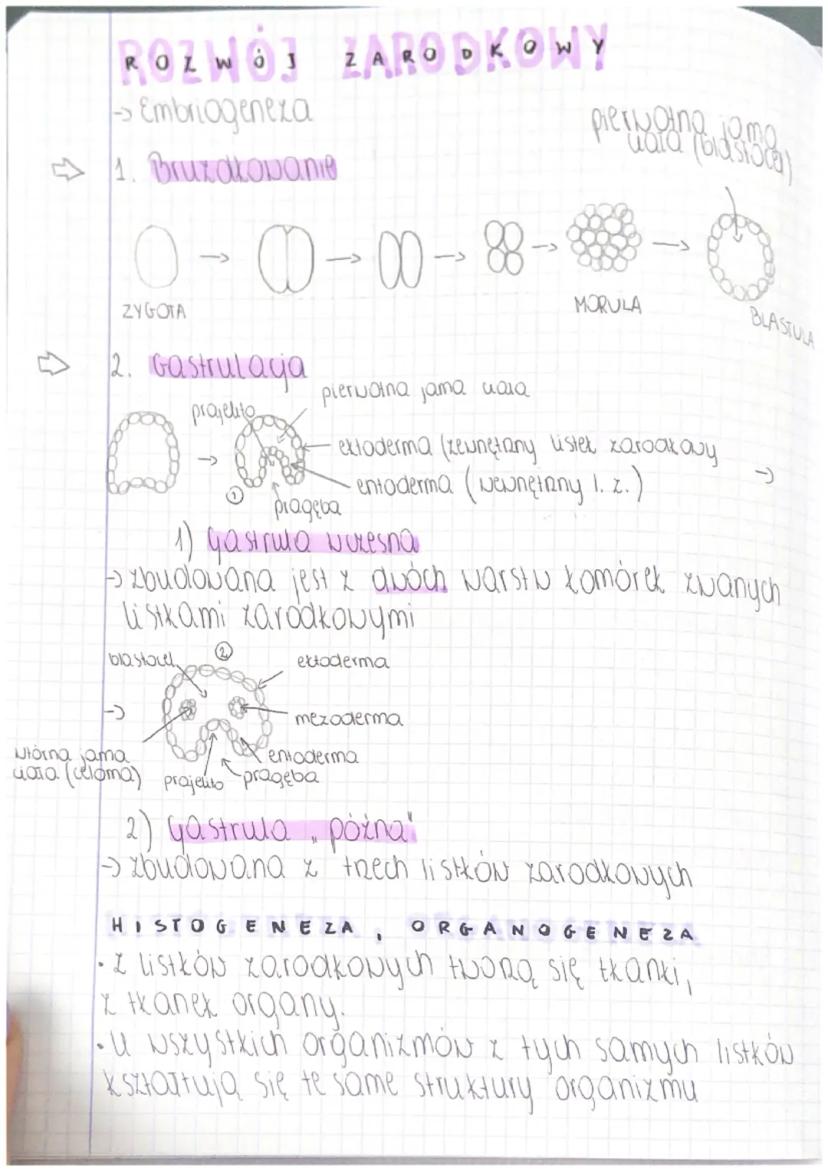 ROZWÓJ ZARODKOWY
→ Embriogeneza
pierwotna jama
ciała (blastocel)
1. Bruzdkowanie
ZYGOTA
MORULA
BLASTULA
2. Gastrulacja
pierwotna jama ciała
prajelito
ektoderma (zewnętrzny listek zarodkowy
entoderma (wewnętrzny l. z.)
①
pragęba
1) Gastrula wczesna
→ zbudowana jest z dwóch warstw komórek zwanych
listkami zarodkowymi
②
blastocel
ektoderma
mezoderma
wtórna jama
ciała (celoma)
entoderma
prajelito
pragęba
2) Gastrula „późna"
→ zbudowana z trzech listków zarodkowych
HISTOGENEZA, ORGANOGENEZA
• Z listków zarodkowych tworzą się tkanki,
z tkanek organy.
• U wszystkich organizmów z tych samych listków
kształtują się te same struktury organizmu